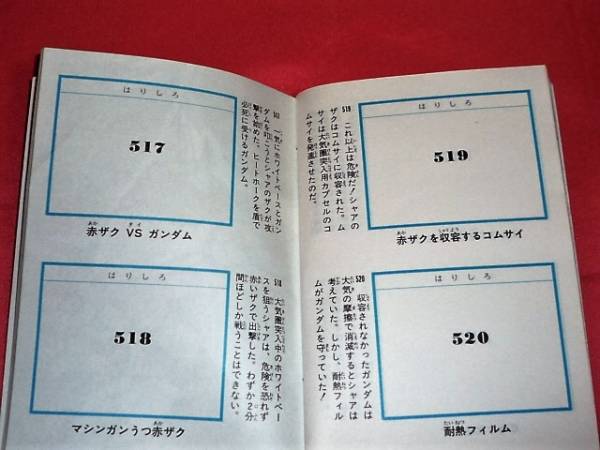 はりしろ
517
赤ザク VS ガンダム
517 一気にホワイトベースとガン
ダムを叩こうとシャアのザクが攻
撃を始めた。ヒートホークを盾で
必死に受けるガンダム。
はりしろ
518
マシンガンうつ赤ザク
518 大気圏突入中のホワイトベー
スを狙うシャアは、危険を恐れず
赤いザクで出撃した。わずか2分
間ほどしか戦うことはできない。
はりしろ
519
赤ザクを収容するコムサイ
519 これ以上は危険だ！シャアの
ザクはコムサイに収容された。ム
サイは大気圏突入用カプセルのコ
ムサイを発進させたのだ。
はりしろ
520
耐熱フィルム
520 収容されなかったガンダムは
大気の摩擦で消滅するとシャアは
考えていた。しかし、耐熱フィル
ムがガンダムを守っていた！